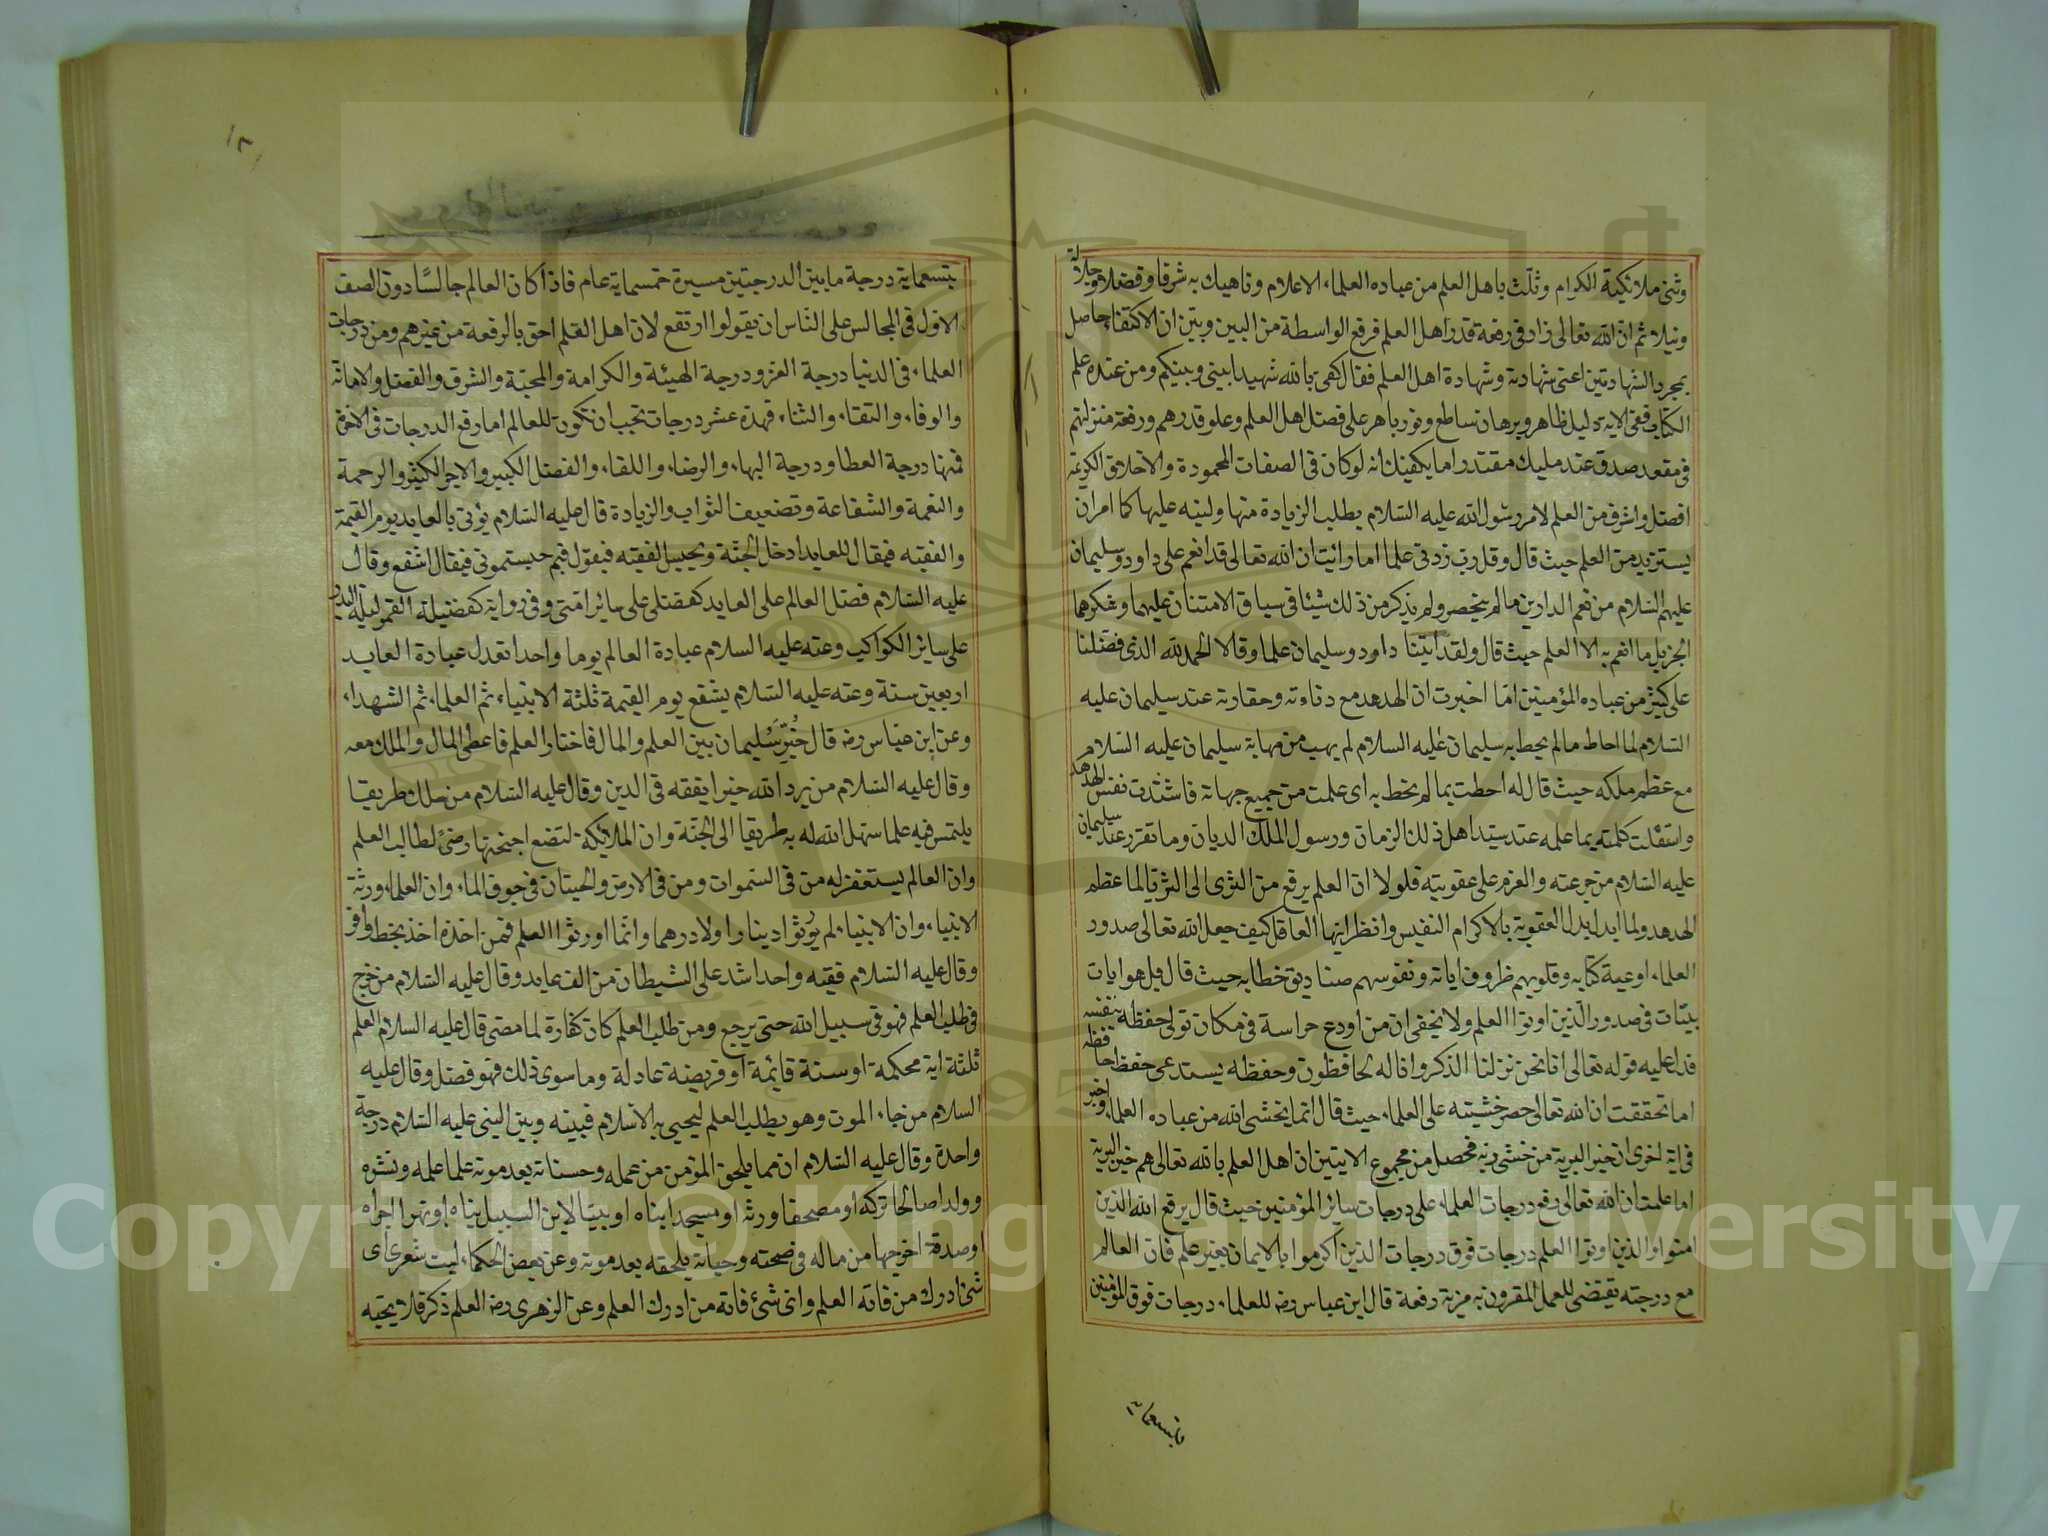 وثنى ملائكية الكرام وثلّث باهل العلم من عباده العلماء الاعلام وناهيك به شرفا وفضلا وجلالة
ونبلا ثم ان الله تعالى زاد فى رفعة قدر اهل العلم فرفع الواسطة من البين وبيّن ان الاكتفاء حاصل
بمجرد الشهادتين اعنى شهادته وشهادة اهل العلم فقال كفى بالله شهيدا بينى وبينكم ومن عنده علم
الكتاب ففى الاية دليل ظاهر وبرهان ساطع ونور باهر على فضل اهل العلم وعلو قدرهم ورفعة منزلتهم
فى مقعد صدق عند مليك مقتدر اما يكفيك انه لو كان فى الصفات المحمودة والاخلاق الكريمة
افضل واشرف من العلم لامر رسول الله عليه السلام بطلب الزيادة منها ولنبه عليها كما امر ان
يستزيد من العلم حيث قال وقل رب زدنى علما اما رايت ان الله تعالى قد انعم على داود وسليمان
عليهم السلام من نعم الدارين ما لم ينحصر ولم يذكر من ذلك شيئا فى سياق الامتنان عليهما وشكرهما
الجزيل ما انعم به الا العلم حيث قال ولقد اتينا داود وسليمان علما وقالا الحمد لله الذى فضلنا
على كثير من عباده المؤمنين امّا اخبرت ان الهدهد مع دناءته وحقارته عند سليمان عليه
السلام لما احاط ما لم يحط به سليمان عليه السلام لم يهب من مهابة سليمان عليه السلام
مع عظم ملكه حيث قال له احطت بما لم تحط به اى علمت من جميع جهاته فاشتدت نفس الهدهد
واستقلت كلمته بما علمه عند سيّد اهل ذلك الزمان ورسول الملك الديان وما تقرر عند سليمان
عليه السلام من جرعته والعزم على عقوبته فلولا ان العلم يرفع من الثرى الى الثريا لما عظم
الهدهد ولما ابدل بدل العقوبة بالاكرام النفيس وانظر ايها العاقل كيف جعل الله تعالى صدور
العلماء اوعية كتابه وقلوبهم ظروف اياته ونفوسهم صناديق خطابه حيث قال بل هو ايات
بيّنات فى صدور الّذين اوتوا العلم ولا يخفى ان من اودع حراسة فى مكان تولى حفظه بنفسه
فدل عليه قوله تعالى انا نحن نزلنا الذكر وانا له لحافظون وحفظه يستدعى حفظ حافظه
اما تحققت ان الله تعالى حصر خشيته على العلماء حيث قال انما يخشى الله من عباده العلماء واخبر
فى اية اخرى ان خير البرية من خشى ربه فحصل من مجموع الايتين ان اهل العلم بالله تعالى هم خير البرية
اما علمت ان الله تعالى رفع درجات العلماء على درجات سائر المؤمنين حيث قال يرفع الله الذين
امنوا والذين اوتوا العلم درجات فوق درجات الذين اكرموا بالايمان بغير علم فان العالم
مع درجته يقتضى للعمل المقرون به مزية رفعة قال ابن عباس رضه للعلماء درجات فوق المؤمنين
بتسعماية
بتسعماية درجة ما بين الدرجتين مسيرة خمسماية عام فاذا كان العالم جالسًا دون الصف
الاول فى المجالس على الناس ان يقولوا ارتفع لان اهل العلم احق بالرفعة من غيرهم ومن درجات
العلماء فى الدنيا درجة العز ودرجة الهيئة والكرامة والمحبّة والشرف والفضل والامانة
والوفاء والتقاء والثناء فهذه عشر درجات تجب ان تكون للعالم اما رفع الدرجات فى الاخرة
فمنها درجة العطا ودرجة البهاء والرضاء واللقاء والفضل الكبير والاجر الكثير والرحمة
والنعمة والشفاعة وتضعيف الثواب والزيادة قال عليه السلام يؤتى بالعابد يوم القيمة
والفقيه فيقال للعابد ادخل الجنّة ويحبس الفقيه فيقول فيم حبستمونى فيقال اشفع وقال
عليه السلام فضل العالم على العابد كفضلى على سائر امتى وفى رواية كفضيلة القمر ليلة البدر
على سائر الكواكب وعنه عليه السلام عبادة العالم يوما واحدا تعدل عبادة العابد
اربعين سنة وعنه عليه السلام يشفع يوم القيمة ثلثة الانبياء ثم العلماء ثم الشهداء
وعن ابن عباس رضه قال خُيّر سُليمان بين العلم والمال فاختار العلم فاعطى المال والملك معه
وقال عليه السلام من يرد الله خيرا يفقه فى الدين وقال عليه السلام من سلك طريقا
يلتمس فيه علما سهل الله له به طريقا الى الجنّة وان الملائكة لتضع اجنحتها رضىً لطالب العلم
وان العالم يستغفر له من فى السموات ومن فى الارض والحيتان فى جوف الماء وان العلماء ورثة
الانبياء وان الانبياء لم يُورثوا دينارا ولا درهما وانّما اورثوا العلم فمن اخذه اخذ بحظ وافر
وقال عليه السلام فقيه واحد اشد على الشيطان من الف عابد وقال عليه السلام من خرج
فى طلب العلم فهو فى سبيل الله حتى يرجع ومن طلب العلم كان كفارة لما مضى قال عليه السلام العلم
ثلثة اية محكمة او سنة قائمة او فريضة عادلة وما سوى ذلك فهو فضل وقال عليه
السلام من جاء الموت وهو يطلب العلم ليحيى به الاسلام فبينه وبين النبى عليه السلام درجة
واحدة وقال عليه السلام ان مما يلحق المؤمن من عمله وحسناته بعد موته علما علمه ونشره
وولدا صالحا تركه او مصحفا ورثه او مسجدا بناه او بيتا لابن السبيل بناه او نهرا اجراه
او صدقة اخرجها من ماله فى صحته وحياته يلحقه بعد موته وعن بعض الحكماء ليت شعرى اى
شئ ادرك من فاته العلم واى شئ فاته من ادرك العلم وعن الزهرى رضه العلم ذكر فلا يحبّه
Copyright © King Saud University
1957